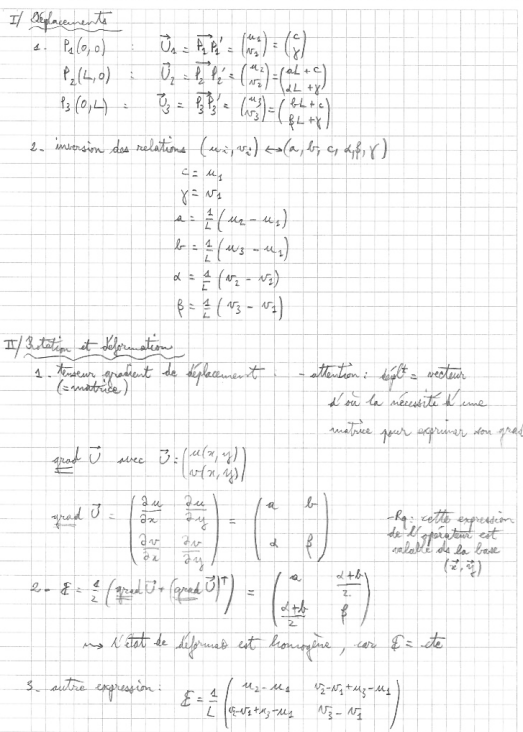 I/ Déplacements
1. P₁(0,0) : U⃗₁ = P₁P₁'⃗ = (u₁ v₁) = (c γ)
P₂(L,0) : U⃗₂ = P₂P₂'⃗ = (u₂ v₂) = (aL+c αL+γ)
P₃(0,L) : U⃗₃ = P₃P₃'⃗ = (u₃ v₃) = (bL+c βL+γ)
2- inversion des relations (uᵢ, vᵢ) ↔ (a, b, c, α, β, γ)
c = u₁
γ = v₁
a = 1/L (u₂ - u₁)
b = 1/L (u₃ - u₁)
α = 1/L (v₂ - v₁)
β = 1/L (v₃ - v₁)
II/ Rotation et déformation
1. tenseur gradient de déplacement. - attention : déplt = vecteur
(=matrice)
d'où la nécessité d'une
matrice pour exprimer son grad
grad U⃗ avec U⃗ : (u(x,y) v(x,y))
grad U⃗ = (∂u/∂x ∂u/∂y ∂v/∂x ∂v/∂y) = (a b α β)
-Rq: cette expression
de l'opérateur est
valable ds la base
(x⃗, y⃗)
2- ε = 1/2 (grad U⃗ + (grad U⃗)ᵀ) = (a (α+b)/2 (α+b)/2 β)
⇝ L'état de déformao est homogène, car ε = cte
3- autre expression : ε = 1/L (u₂-u₁ v₂-v₁+u₃-u₁ v₂-v₁+u₃-u₁ v₃-v₁)